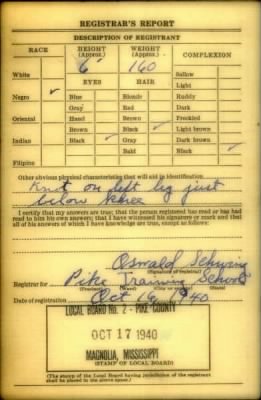 REGISTRAR'S REPORT
DESCRIPTION OF REGISTRANT
RACE HEIGHT (Approx.) WEIGHT (Approx.) COMPLEXION
6' 160
White EYES HAIR Sallow
Light
Negro ✓ Blue Blonde Ruddy
Gray Red Dark
Oriental Hazel Brown Freckled
Brown ✓ Black ✓ Light brown
Indian Black Gray Dark brown
Bald Black ✓
Filipino
Other obvious physical characteristics that will aid in identification
Knot on left leg just
below knee
I certify that my answers are true; that the person registered has read or has had
read to him his own answers; that I have witnessed his signature or mark and that
all of his answers of which I have knowledge are true, except as follows:
Oswald
(Signature of registrar)
Registrar for Pike Training School
(Precinct) (State)
Date of registration Oct 16, 1940
LOCAL BOARD No. 2 - PIKE COUNTY
OCT 17 1940
MAGNOLIA, MISSISSIPPI
(STAMP OF LOCAL BOARD)
(The stamp of the Local Board having jurisdiction of the registrant
shall be placed in the above space.)